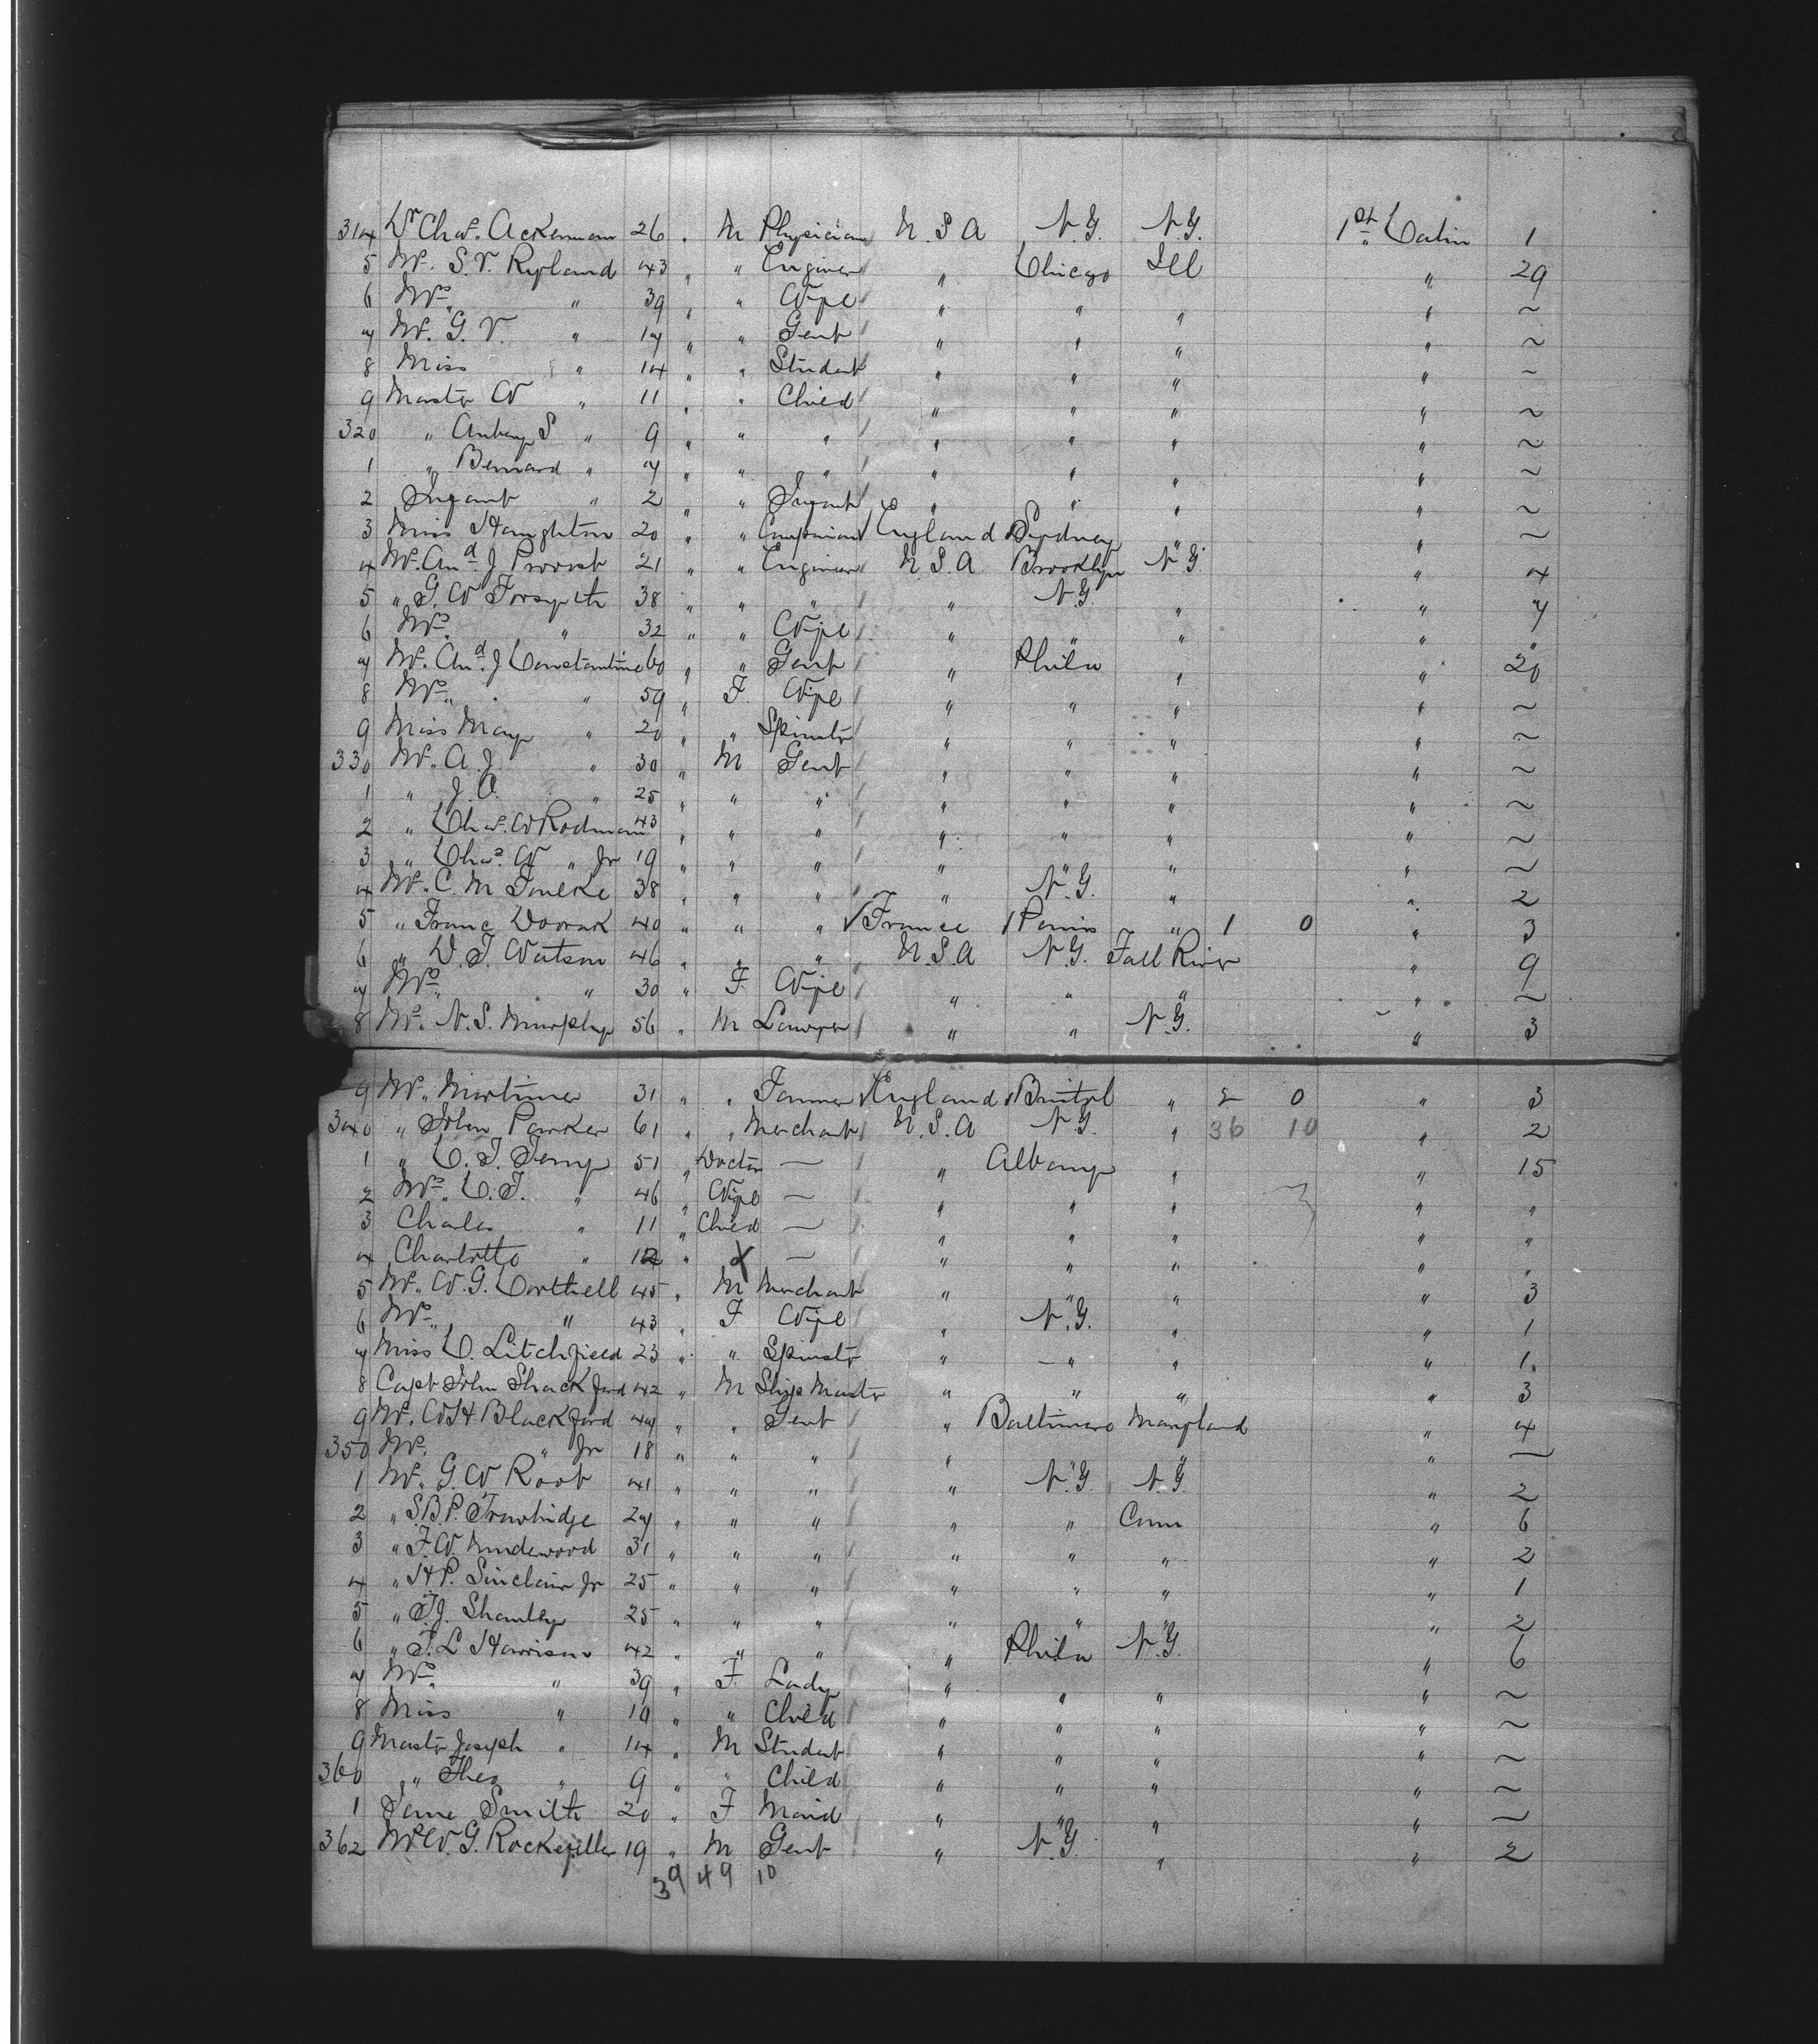 314 Dr Chas. Ackerman 26 " M Physician U.S.A N.Y. N.Y. 1st Cabin 1
5 Mr. S.V. Ryland 43 " " Engineer " Chicago Ill " 29
6 Mrs. " 39 " " Wife " " " " ~
7 Mr. G.V. " 17 " " Gent " " " " ~
8 Miss " 14 " " Student " " " " ~
9 Master W " 11 " " Child " " " " ~
320 " S " 9 " " " " " " " ~
1 " Bernard " 7 " " " " " " " ~
2 Infant " 2 " " Infant " " " " ~
3 Miss Haughton 20 " " Companion England Sydney " " ~
4 Mr. And. J Provost 21 " " Engineer U.S.A Brooklyn N.Y. " 4
5 " G.W Forsyth 38 " " " " N.Y. " " 7
6 Mrs. " 32 " " Wife " " " " "
7 Mr. And. J Constantine 60 " " Gent " Phila " " 20
8 Mrs. " 59 " F. Wife " " " " ~
9 Miss May " 20 " " Spinster " " " " ~
330 Mr. A.J. " 30 " M Gent " " " " ~
1 " J.O. " 25 " " " " " " " ~
2 " Chas. W Rodman 43 " " " " " " " ~
3 " Chas. W " Jr 19 " " " " " " " ~
4 Mr. C.M 38 " " " " N.Y. " " 2
5 " Franc Dvorak 40 " " " France Paris " 1 0 " 3
6 " D.T. Watson 46 " " " U.S.A N.Y. Fall River " 9
7 Mrs. " 30 " F. Wife " " " " ~
8 Mr. N.S. Murphy 56 " M Lawyer " " N.Y. " 3
9 Mr. Mortimer 31 " " Farmer England Bristol " 2 0 " 3
340 " John Parker 61 " " Merchant U.S.A N.Y. " 36 10 " 2
1 " C.T. 51 " Doctor — " Albany " " 15
2 Mrs. C.T. " 46 " Wife — " " " " "
3 Charles " 11 " Child — " " " " "
4 Charlotte " 12 " X — " " " " "
5 Mr. W.G. Corthell 45 " M Merchant " " " " 3
6 Mrs. " 43 " F Wife " N.Y. " " 1
7 Miss C. Litchfield 23 " " Spinster " " " " 1
8 Capt John Shackford 42 " M Ship Master " " " " 3
9 Mr. W.H Blackford 47 " " Gent " Baltimore Maryland " 4
350 Mr. " Jr 18 " " " " " " " —
1 Mr. G.W Root 41 " " " " N.Y. N.Y. " 2
2 " S.B.P. Trowbridge 27 " " " " " Conn " 6
3 " F.W. Underwood 31 " " " " " " " 2
4 " H.P. Sinclair Jr 25 " " " " " " " 1
5 " T.J. Shanley 25 " " " " " " " 2
6 " T.L Harrison 42 " " " " Phila N.Y. " 6
7 Mrs. " 39 " F. Lady " " " " ~
8 Miss " 10 " " Child " " " " ~
9 Master Joseph " 14 " M Student " " " " ~
360 " Theo " 9 " " Child " " " " ~
1 Jane Smith 20 " F Maid " " " " ~
362 Mr W.G. Rockefeller 19 " M Gent " N.Y. " " 2
39 49 10